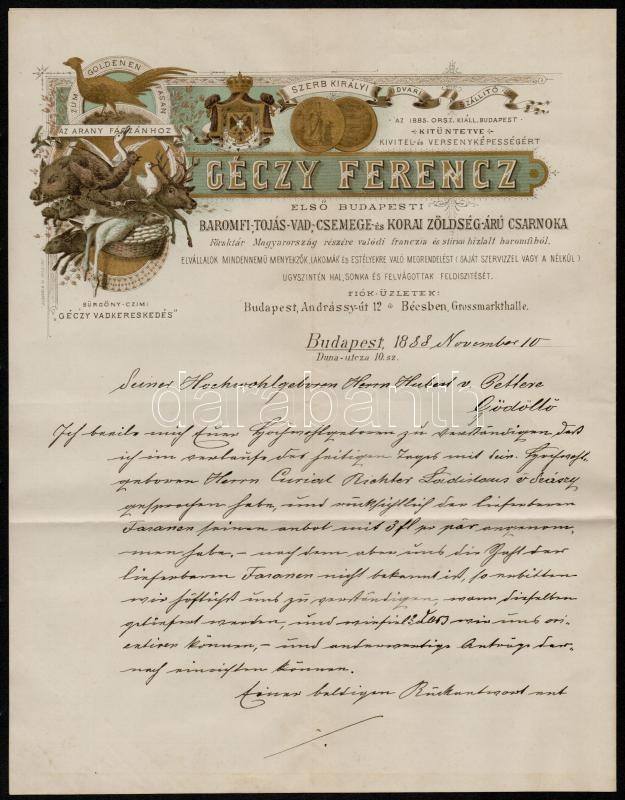 ZUM GOLDENEN FASAN
AZ ARANY FÁCZÁNHOZ
SZERB KIRÁLYI UDVARI SZÁLLITÓ
AZ 1885. ORSZ. KIÁLL. BUDAPEST
KITÜNTETVE
KIVITEL- és VERSENYKÉPESSÉGÉRT
GÉCZY FERENCZ
ELSŐ BUDAPESTI
BAROMFI-, TOJÁS- VAD-, CSEMEGE- és KORAI ZÖLDSÉG-ÁRÚ CSARNOKA
Főraktár Magyarország részére valódi franczia és stiriai hizlalt baromfiból.
ELVÁLLALOK MINDENNEMŰ MENYEKZŐK, LAKOMÁK és ESTÉLYEKRE VALÓ MEGRENDELÉST (SAJÁT SZERVIZZEL VAGY A NÉLKÜL)
UGYSZINTÉN HAL, SONKA ÉS FELVÁGOTTAK FELDISZITÉSÉT.
FIÓK-ÜZLETEK:
Budapest, Andrássy-út 12 Bécsben, Grossmarkthalle.
SÜRGÖNY-CZIM:
"GÉCZY VADKERESKEDÉS"
Budapest, 1888 November 10
Duna-utcza 10. sz.
Seiner Hochwohlgeboren Herrn Hubert v.
Gödöllő
Ich beeile mich Euer Hochwohlgeboren zu verständigen, daß
ich im verlaufe des heitigen Tages mit Sein. Hochwohl-
geboren Herrn Curial Richter Ladislaus v
gesprochen habe, und rücksichtlich der lieferbaren
Fasanen seinen anbot mit 5 fl pr pár angenom-
men habe. – nach dem aber uns die Zahl der
lieferbaren Fasanen nicht bekannt ist, so erbitten
wir höflichst uns zu verständigen, wann dieselben
geliefert werden, und wiefiel? daß wir uns ori-
entiren können, – und anderweitige Anträge dar-
nach einrichten können.
Einer baldigen Rückantwort ent
darabanth